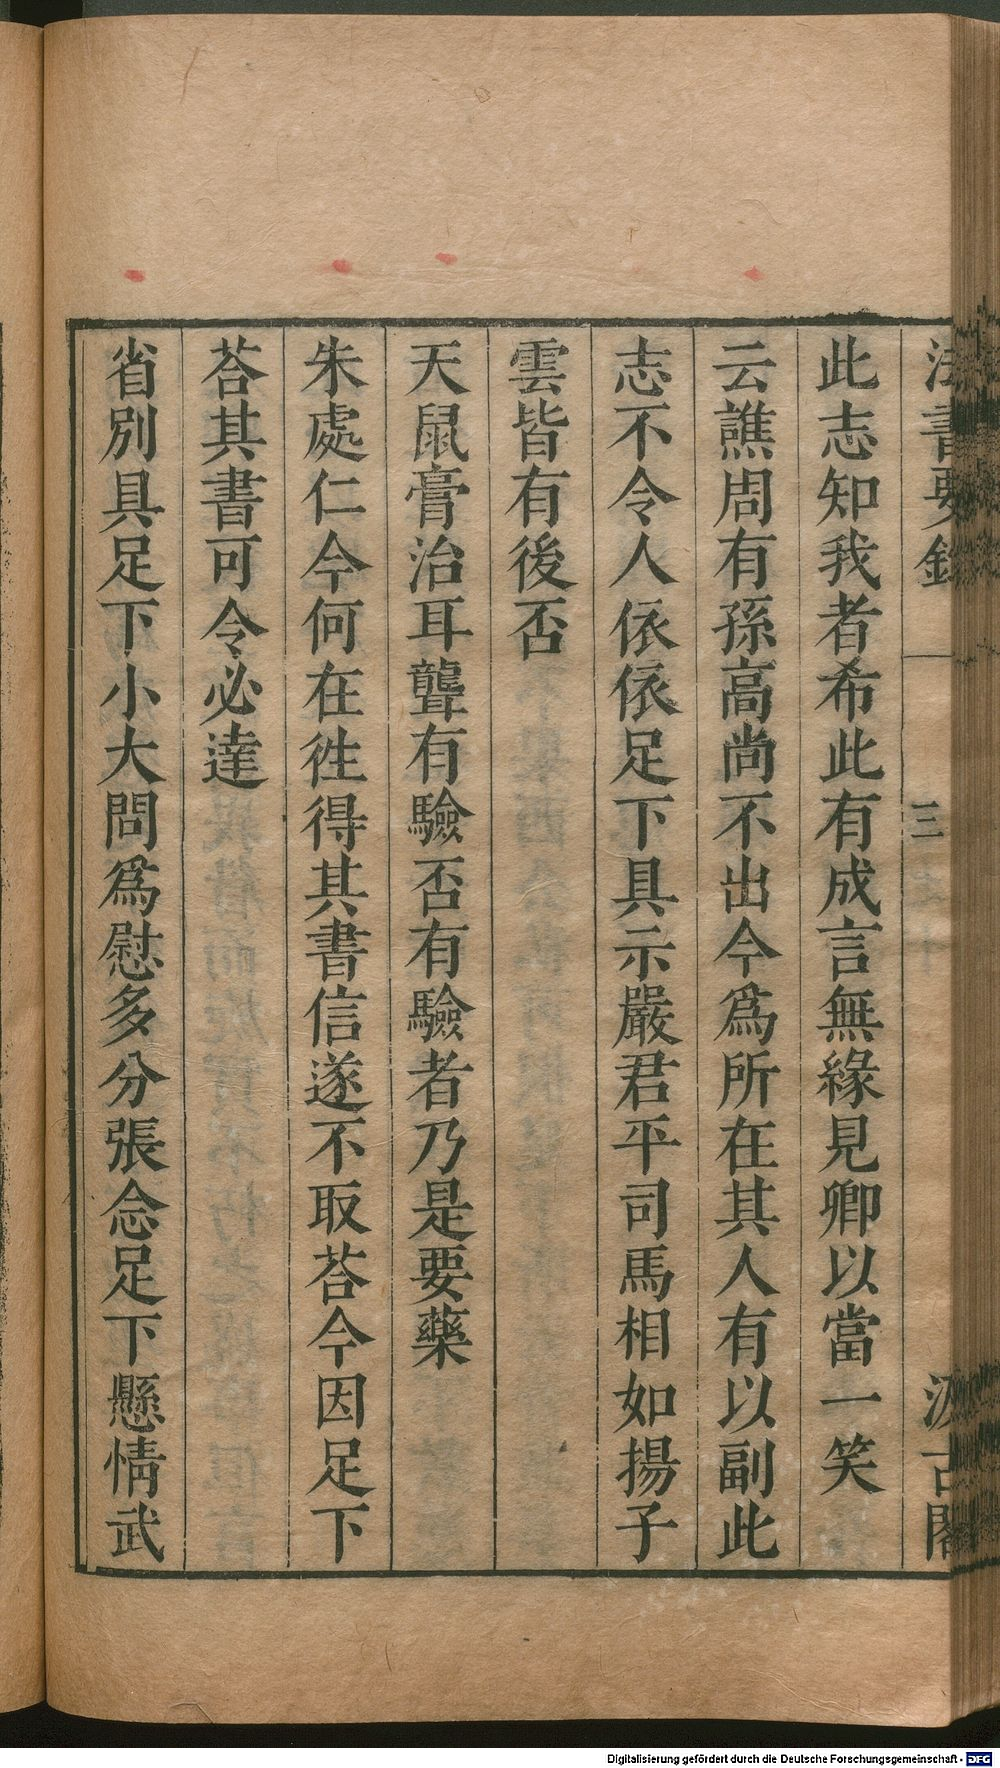 法書要錄 三 汲古閣
此志知我者希此有成言無緣見卿以當一笑
云譙周有孫高尚不出今為所在其人有以副此
志不令人依依足下具示嚴君平司馬相如揚子
雲皆有後否
天鼠膏治耳聾有驗否有驗者乃是要藥
朱處仁今何在徃得其書信遂不取荅今因足下
荅其書可令必達
省別具足下小大問爲慰多分張念足下懸情武
Digitalisierung gefördert durch die Deutsche Forschungsgemeinschaft - DFG